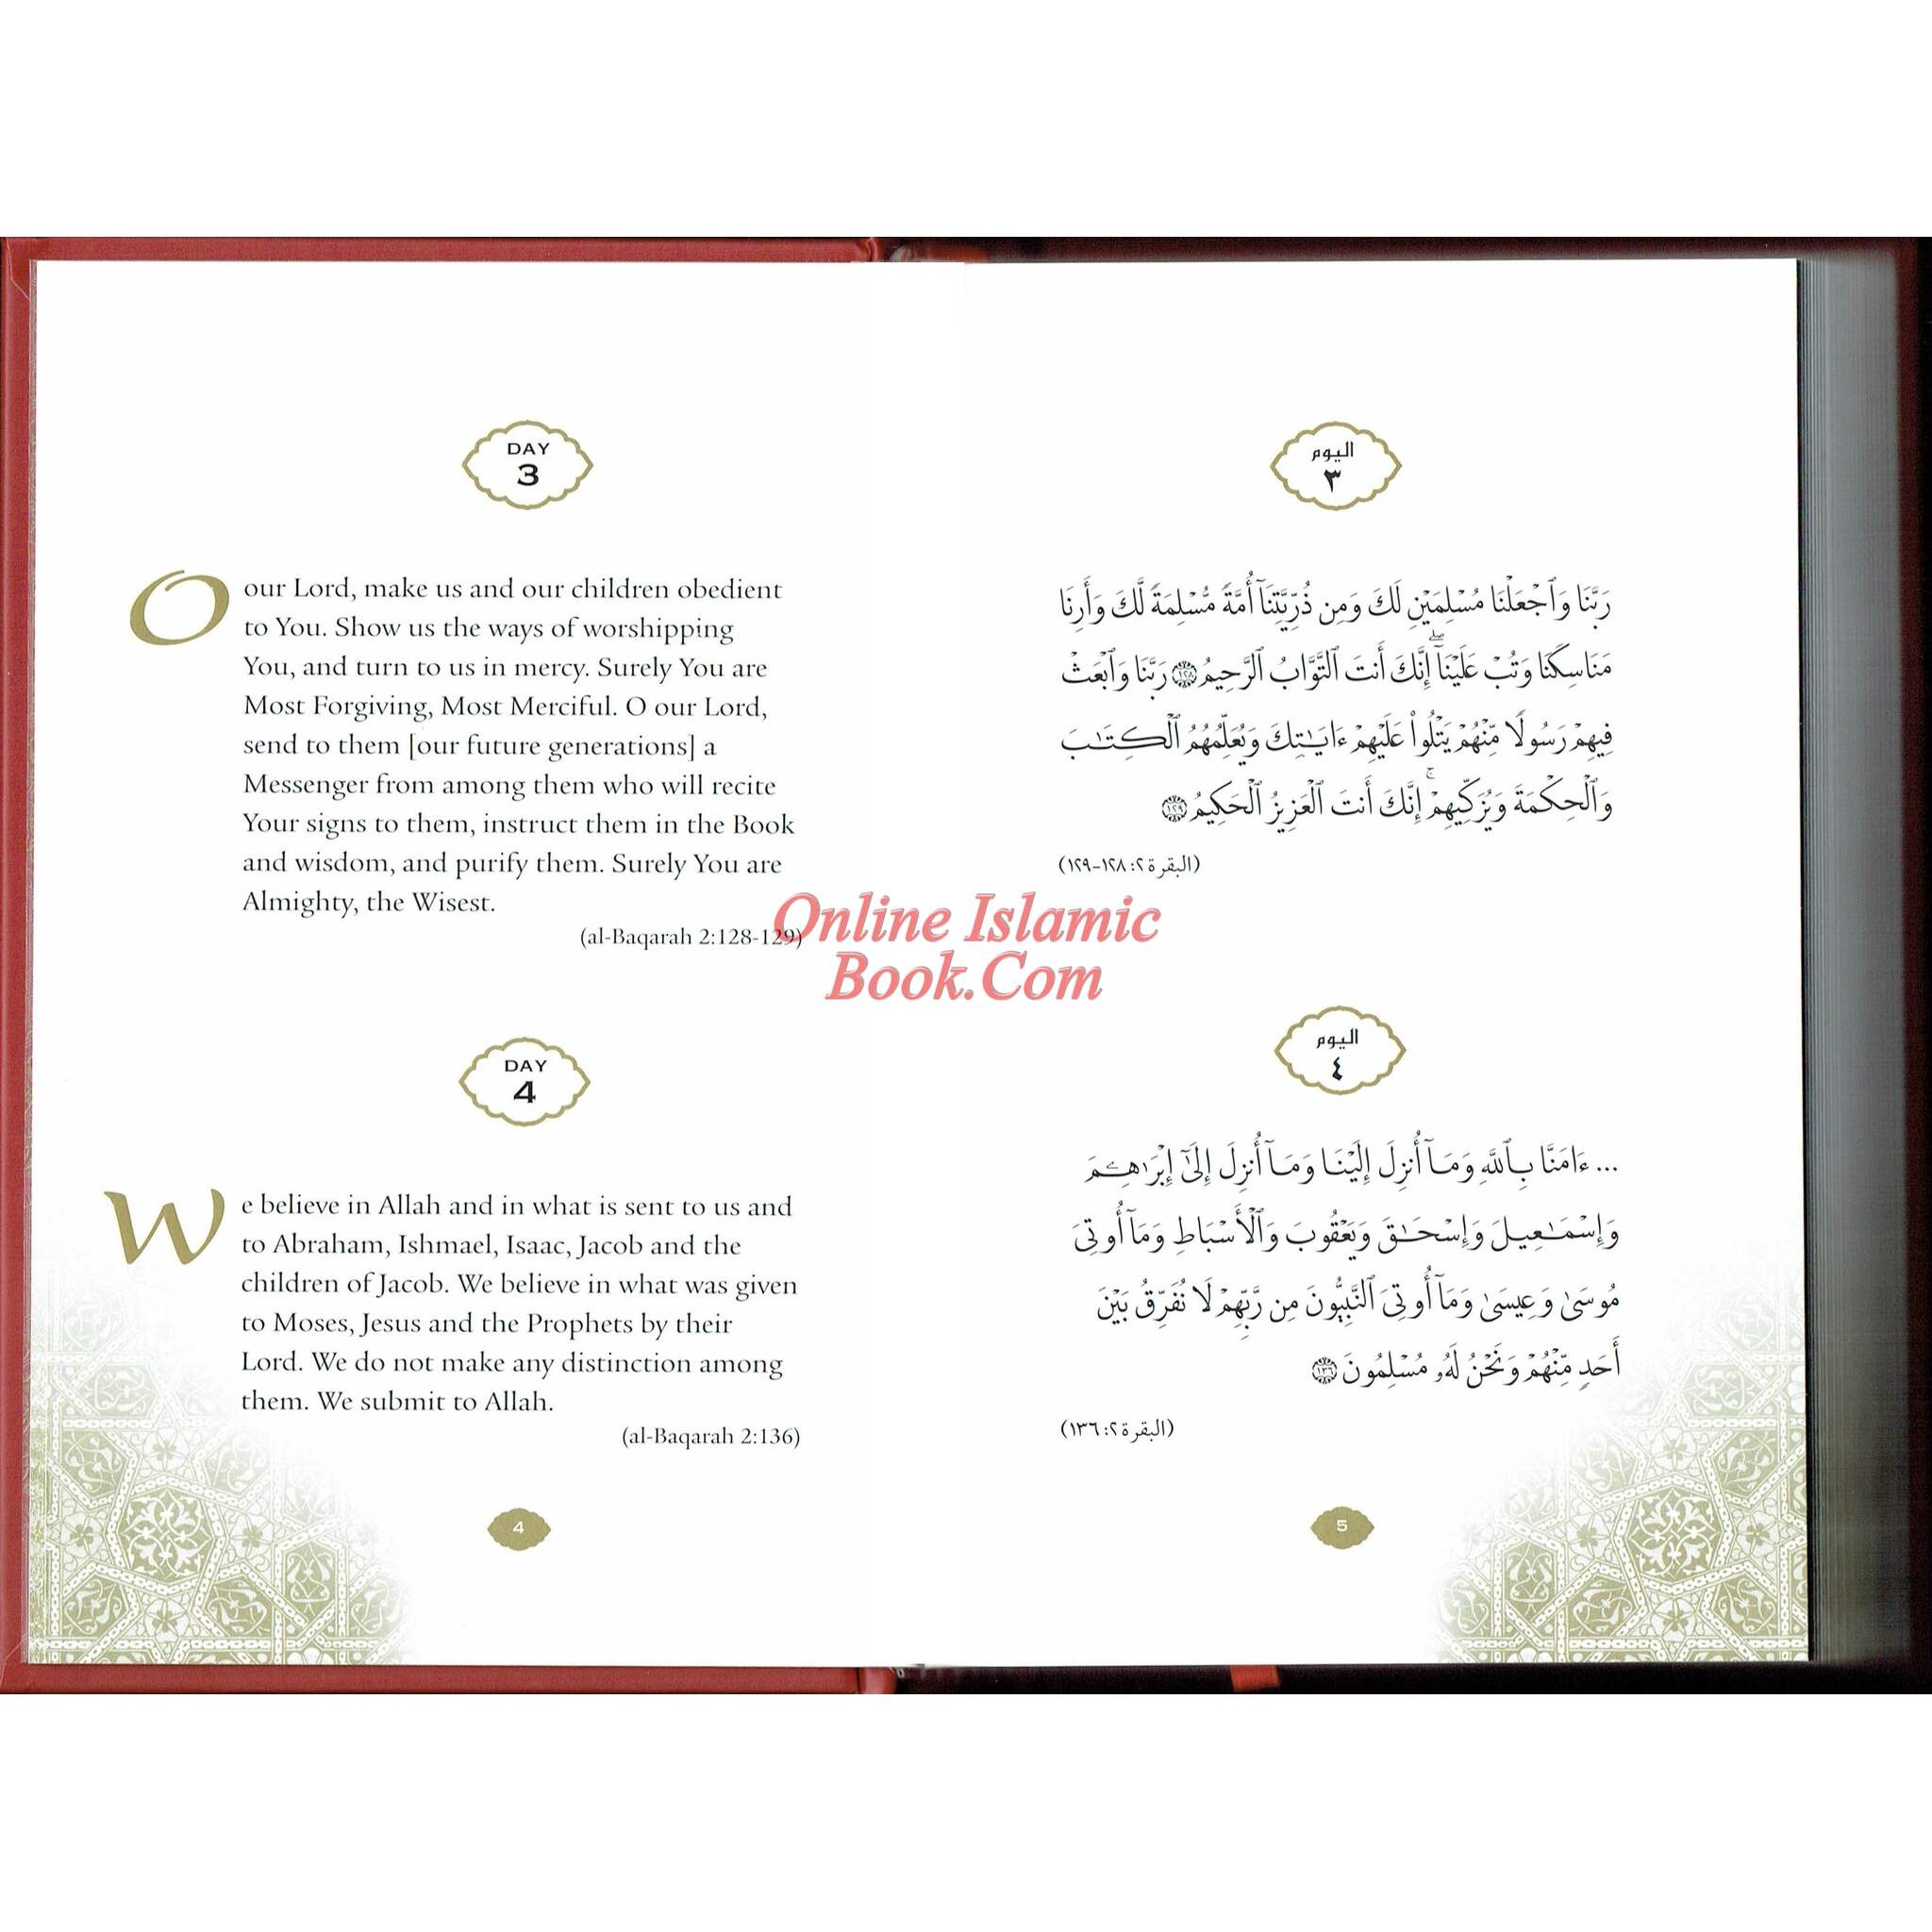 DAY
3
O our Lord, make us and our children obedient
to You. Show us the ways of worshipping
You, and turn to us in mercy. Surely You are
Most Forgiving, Most Merciful. O our Lord,
send to them [our future generations] a
Messenger from among them who will recite
Your signs to them, instruct them in the Book
and wisdom, and purify them. Surely You are
Almighty, the Wisest.
(al-Baqarah 2:128-129)
DAY
4
We believe in Allah and in what is sent to us and
to Abraham, Ishmael, Isaac, Jacob and the
children of Jacob. We believe in what was given
to Moses, Jesus and the Prophets by their
Lord. We do not make any distinction among
them. We submit to Allah.
(al-Baqarah 2:136)
4
Online Islamic
Book.Com
اليوم
٣
رَبَّنَا وَٱجْعَلْنَا مُسْلِمَيْنِ لَكَ وَمِن ذُرِّيَّتِنَآ أُمَّةً مُّسْلِمَةً لَّكَ وَأَرِنَا
مَنَاسِكَنَا وَتُبْ عَلَيْنَآ ۖ إِنَّكَ أَنتَ ٱلتَّوَّابُ ٱلرَّحِيمُ ١٢٨ رَبَّنَا وَٱبْعَثْ
فِيهِمْ رَسُولًا مِّنْهُمْ يَتْلُوا۟ عَلَيْهِمْ ءَايَـٰتِكَ وَيُعَلِّمُهُمُ ٱلْكِتَـٰبَ
وَٱلْحِكْمَةَ وَيُزَكِّيهِمْ ۚ إِنَّكَ أَنتَ ٱلْعَزِيزُ ٱلْحَكِيمُ ١٢٩
(البقرة ٢: ١٢٨-١٢٩)
اليوم
٤
... ءَامَنَّا بِٱللَّهِ وَمَآ أُنزِلَ إِلَيْنَا وَمَآ أُنزِلَ إِلَىٰٓ إِبْرَٰهِـۧمَ
وَإِسْمَـٰعِيلَ وَإِسْحَـٰقَ وَيَعْقُوبَ وَٱلْأَسْبَاطِ وَمَآ أُوتِىَ
مُوسَىٰ وَعِيسَىٰ وَمَآ أُوتِىَ ٱلنَّبِيُّونَ مِن رَّبِّهِمْ لَا نُفَرِّقُ بَيْنَ
أَحَدٍ مِّنْهُمْ وَنَحْنُ لَهُۥ مُسْلِمُونَ ١٣٦
(البقرة ٢: ١٣٦)
5